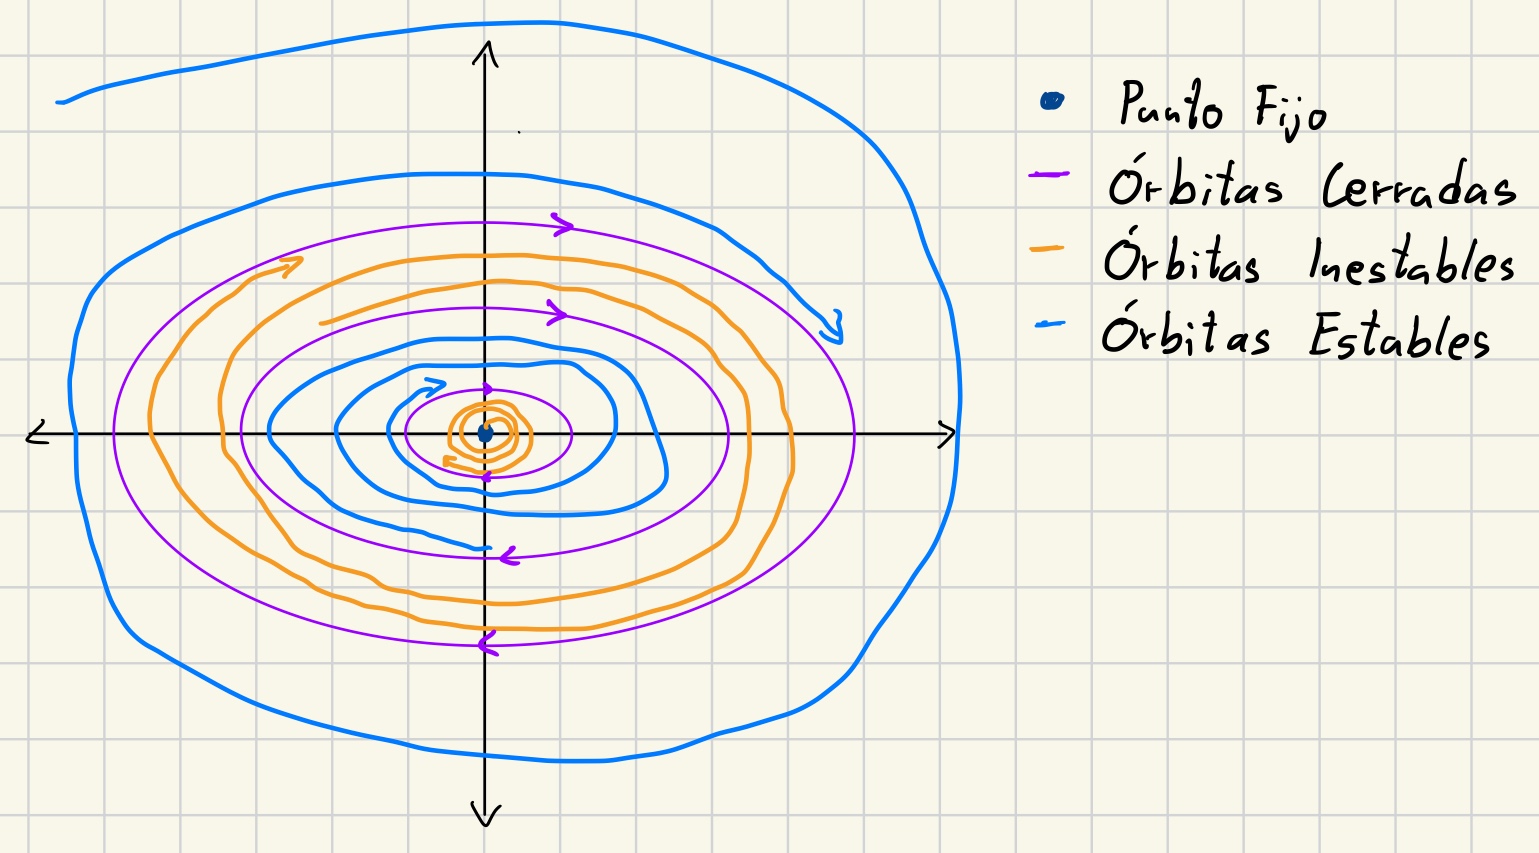 Punto Fijo
Órbitas Cerradas
Órbitas Inestables
Órbitas Estables